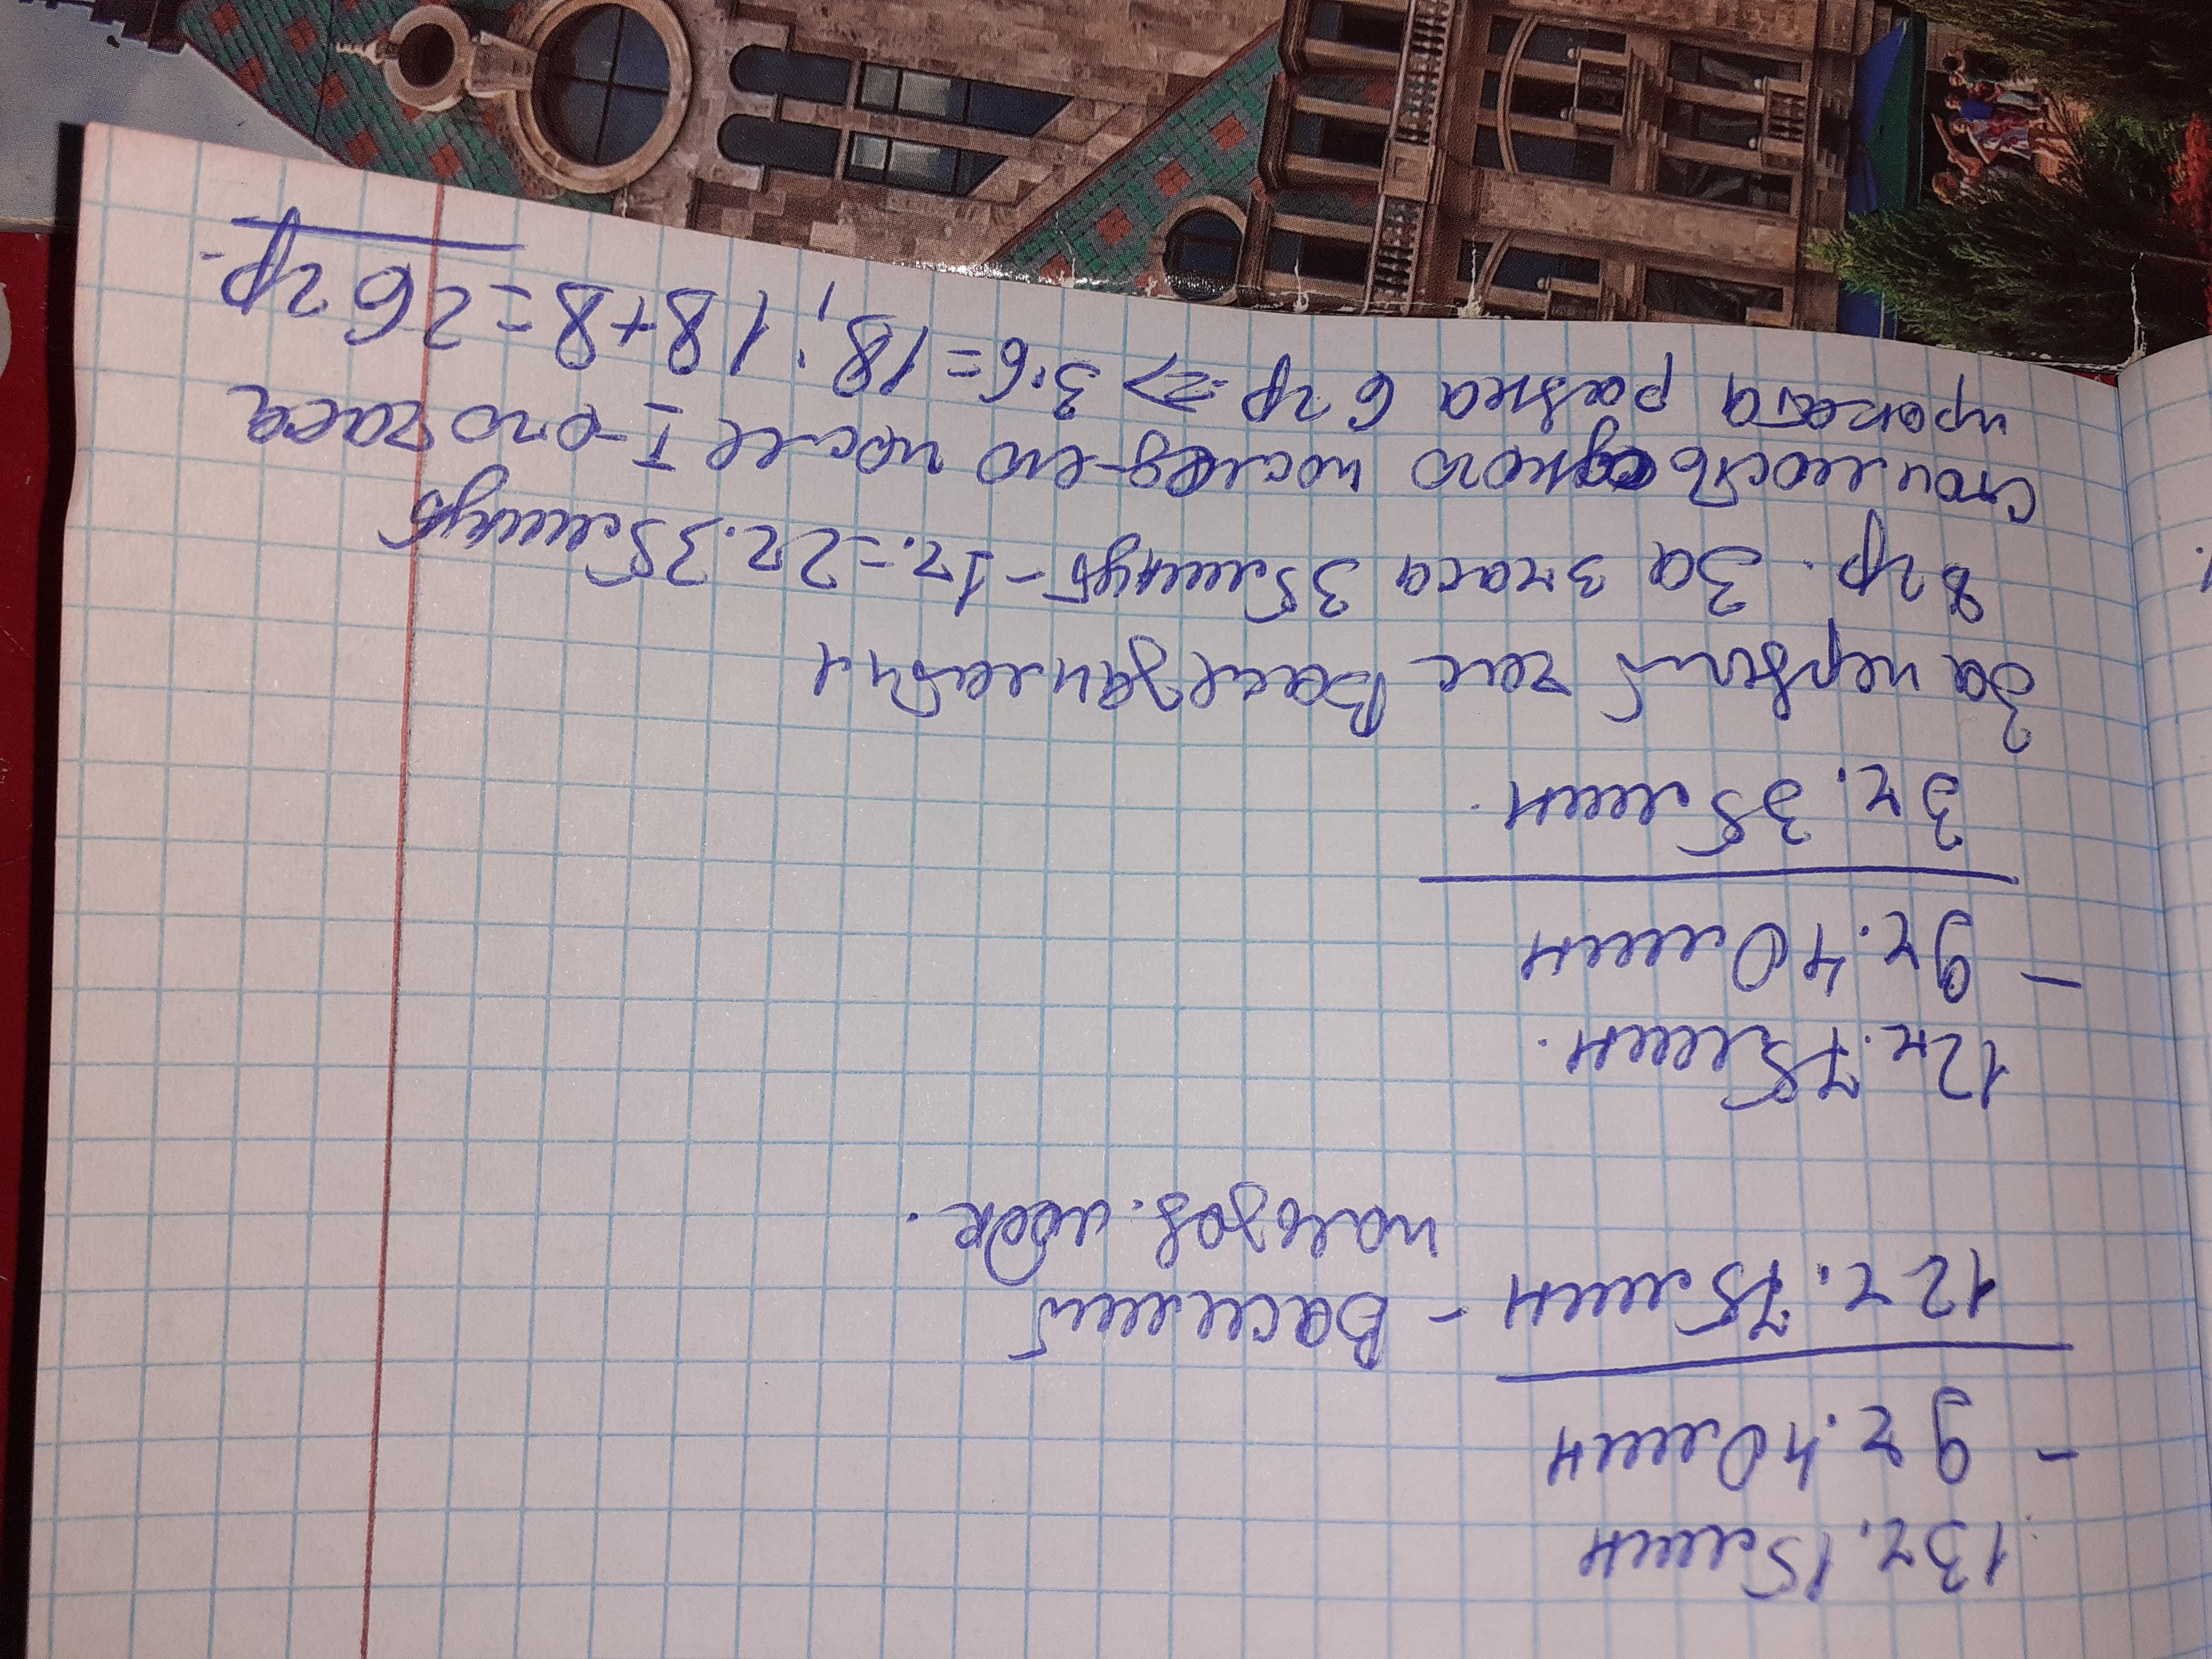 13ч. 15мин
- 9ч. 40мин
12ч. 75мин - Василий
пользов. моск.
12ч. 75мин.
- 9ч. 40мин
3ч. 35мин.
За первый час Вася
8 гр. За 3 часа 35минут - 1ч. = 2ч. 35минут
стоимость одного послед-его после I-ого часа
проката равна 6 гр => 3·6 = 18; 18+8 = 26 гр.